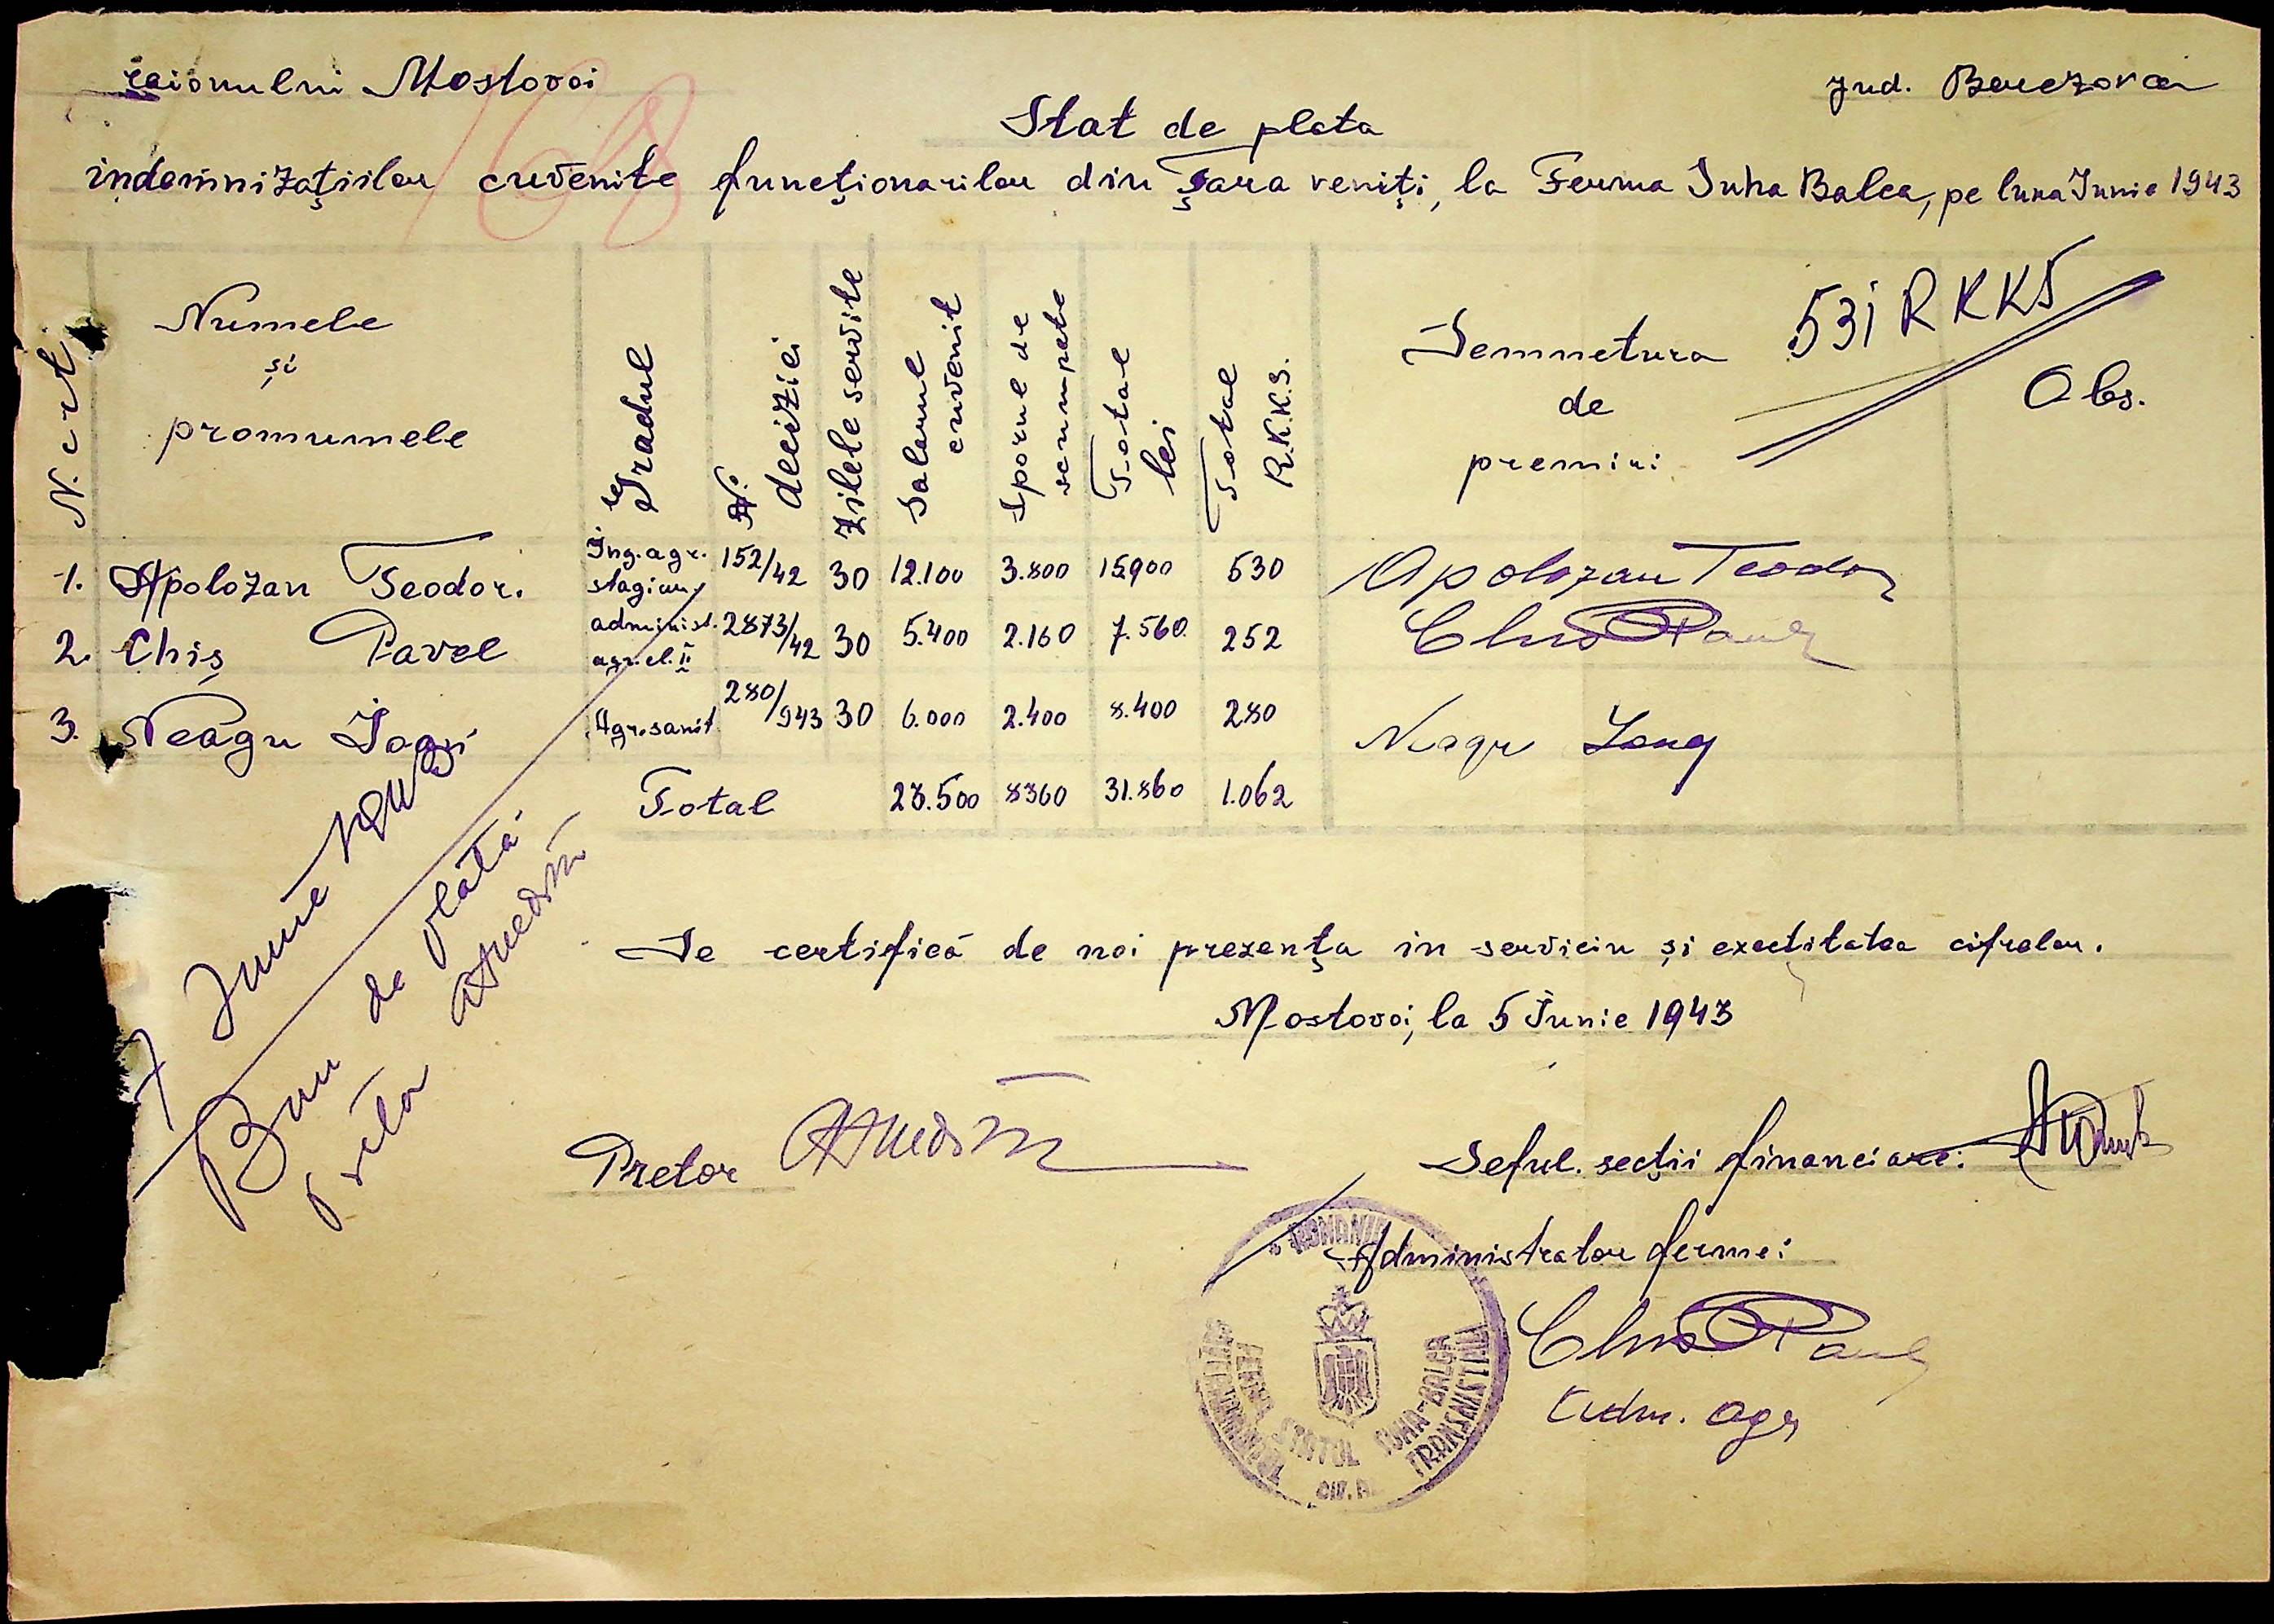 raionului Mostovoi
jud. Berezovca
168
Stat de plata
indemnizaţiilor cuvenite funcţionarilor din Ţara veniţi, la Ferma Suha Balca, pe luna Junie 1943
N. crt.
Numele
şi
pronumele
Gradul
N. deciziei
Zilele servite
Salarul cuvenit
Sporul de scumpete
Total lei
Total R.K.K.S.
Semnetura
de
primiri
531 RKKS
Obs.
1. Apolozan Teodor. Ing. agr. stagiar 152/42 30 12.100 3.800 15900 530 Apolozan Teodor
2. Chiş Pavel administ. agr. cl. II 2873/42 30 5.400 2.160 7.560 252 Chiş Pavel
3. Neagu Ioan Agr. sanit. 280/943 30 6.000 2.400 8.400 280 Neagu Ioan
Total 23.500 8360 31.860 1.062
7 Junie 1943
Bun de plată
Se certifică de noi prezenţa in serviciu şi exactitatea cifrelor.
Mostovoi, la 5 Junie 1943
Pretor
Seful. secţii financiare:
Administrator fermei
Chiş Pavel
Adm. agr
ROMANIA
GUVERNAMANTUL TRANSNISTRIEI
FERMA STATUL SUHA-BALCA